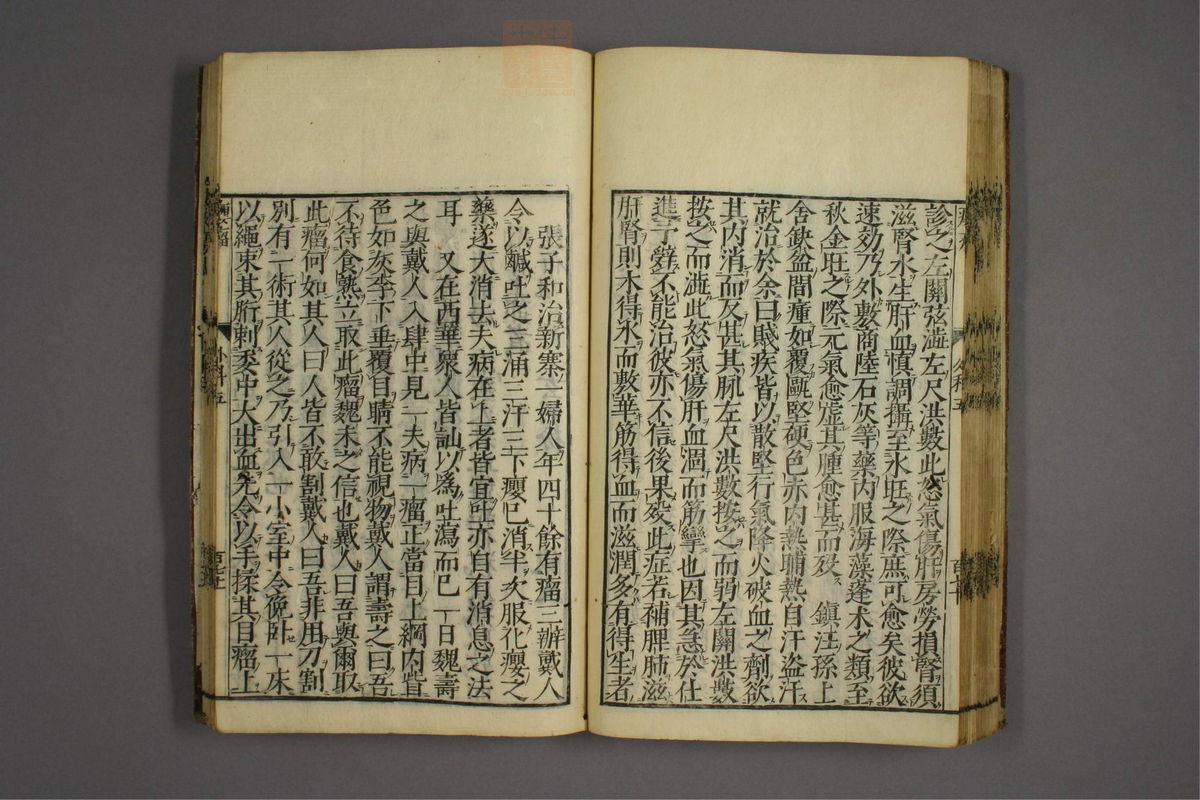 診之左關弦澁左尺洪數此怒氣傷肝房勞損腎須
滋腎水生肝血慎調攝至水旺之際庶可愈矣彼欲
速効乃外敷商陸石灰等藥内服海藻蓬术之類至
秋金旺之際元氣愈虚其腫愈甚而歿　鎮汪孫上
舍缺盆間瘇如覆甌堅硬色赤内熱晡熱自汗盗汗
就治於余曰賊疾皆以散堅行氣降火破血之劑欲
其内消而反甚其脉左尺洪數按之而弱左關洪數
按之而澁此怒氣傷肝血涸而筋攣也因其急於仕
進予辭不能治彼亦不信後果歿此症若補脾肺滋
肝腎則木得水而敷華筋得血而滋潤多有得生者
張子和治新寨一婦人年四十餘有瘤三瓣戴人
令以鹹吐之三涌三汗三下癭已消半次服化癭之
藥遂大消去夫病在上者皆宜吐亦自有消息之法
耳　又在西華衆人皆訕以爲吐瀉而已一日魏壽
之與戴人入肆中見一夫病一瘤正當目上網内眥
色如灰李下垂覆目睛不能視物戴人謂壽之曰吾
不待食熟立取此瘤魏未之信也戴人曰吾與爾取
此瘤何如其人曰人皆不敢割戴人曰吾非用刀割
別有一術其人從之乃引入一小室中令俛卧一床
以繩束其胻刺委中大出血先令以手揉其目瘤上
外科五